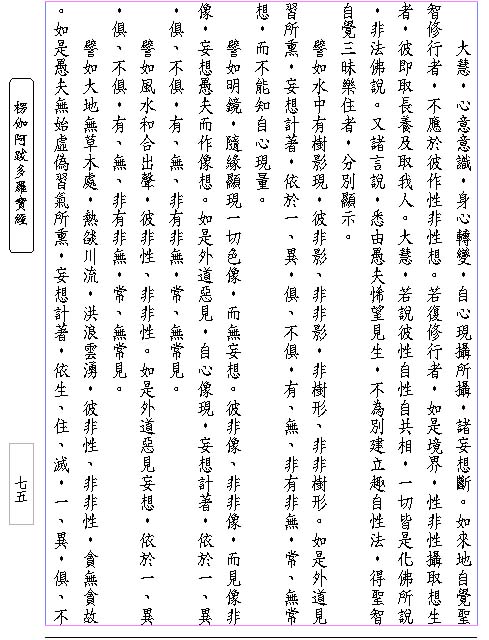 大慧，心意意識，身心轉變，自心現攝所攝，諸妄想斷。如來地自覺聖
智修行者，不應於彼作性非性想。若復修行者，如是境界，性非性攝取想生
者，彼即取長養及取我人。大慧，若說彼性自性自共相，一切皆是化佛所說
，非法佛說。又諸言說，悉由愚夫悕望見生，不為別建立趣自性法，得聖智
自覺三昧樂住者，分別顯示。
譬如水中有樹影現，彼非影、非非影，非樹形、非非樹形。如是外道見
習所熏，妄想計著，依於一、異，俱、不俱，有、無、非有非無，常、無常
想，而不能知自心現量。
譬如明鏡，隨緣顯現一切色像，而無妄想。彼非像、非非像，而見像非
像，妄想愚夫而作像想。如是外道惡見，自心像現，妄想計著，依於一、異
，俱、不俱，有、無、非有非無，常、無常見。
譬如風水和合出聲，彼非性、非非性。如是外道惡見妄想，依於一、異
，俱、不俱，有、無、非有非無，常、無常見。
譬如大地無草木處，熱燄川流，洪浪雲湧，彼非性、非非性，貪無貪故
。如是愚夫無始虛偽習氣所熏，妄想計著，依生、住、滅，一、異，俱、不
楞伽阿跋多羅寶經
七五